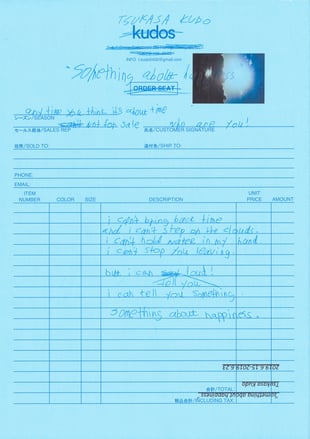 TSUKASA KUDO
kudos
"Something about happiness
ORDER SEAT
any time you think it's about time
シーズン/SEASON
not for sale who are you!
セールス担当/SALES REP 氏名/CUSTOMER SIGNATURE
住所/SOLD TO: 送付先/SHIP TO:
PHONE:
EMAIL:
ITEM NUMBER COLOR SIZE DESCRIPTION UNIT PRICE AMOUNT
i can't bring back time
and i can't step on the clouds.
i can't hold water in my hand
i can't stop you leaving.
but i can say loud!
tell you
i can tell you something.
Something about happiness.
2019.6.15-2019.6.23
Tsukasa Kudo
"Something about happiness"
合計/TOTAL
税込合計/INCLUDING TAX